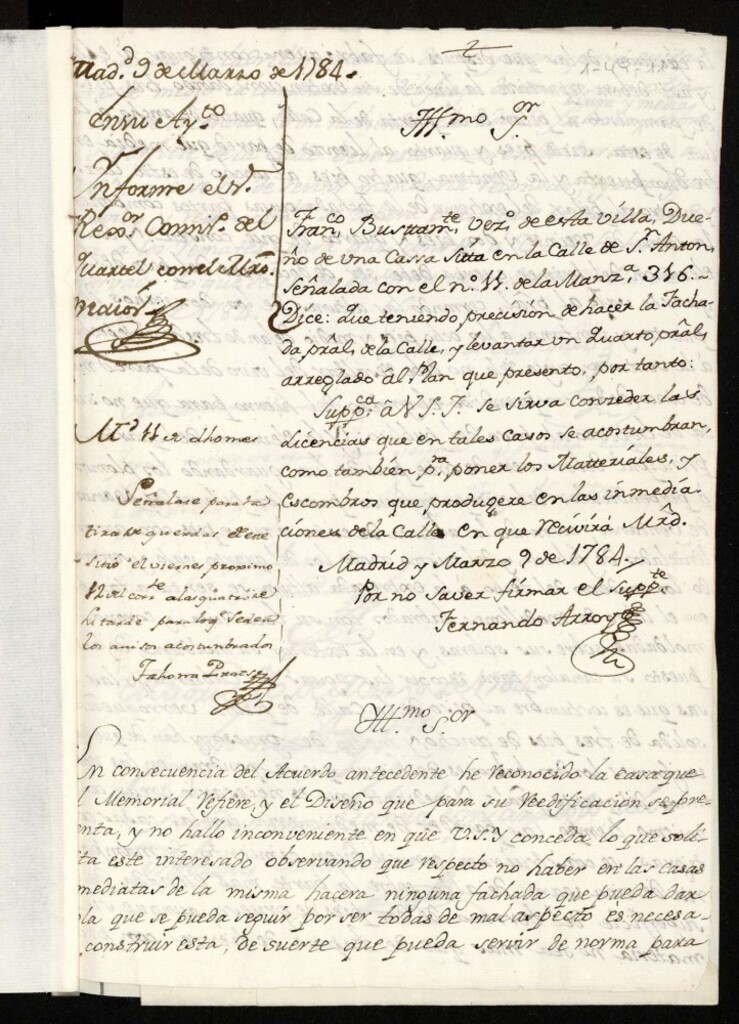 Mad.d 9 de Marzo de 1784.
En su Ay.to
Informe el S.r
Rexo.or Comis.o del
quartel con el Mro.
maior
Ill.mo S.or
Fran.co Bustam.te vez.o de esta villa, Due-
ño de una Cassa sitta en la Calle de S.n Anton,
señalada con el n.o 11. de la Manz.a 316.
Dice: que teniendo precision de hacer la Facha-
da pral, de la Calle, y levantar un quarto pral,
arreglado al Plan que presento, por tanto:
Supp.ca â V.S.I. se sirva conzeder las
licencias que en tales casos se acostumbran,
como tambien p.ra poner los Matteriales, y
escombros que produgere en las inmedia-
ciones de la Calle en que Recivirá Mrd.
Madrid y Marzo 9 de 1784.
Por no saver firmar el Supp.te
Fernando Arroyo
M.d 11 de dho mes
Señalase para la
tira de querdas de este
sitio el viernes proximo
12 del corr.te a las quatro de
la tarde para lo q.e se den
los avisos acostumbrados
Ill.mo S.or
En consecuencia del Acuerdo antecedente he reconocido la casa que
l Memorial refiere, y el Diseño que para su reedificacion se pre-
nta, y no hallo inconveniente en que V.S.Y conceda lo que soli-
ta este interesado observando que respecto no haber en las casas
mediatas de la misma hacera ninguna fachada que pueda dar
la que se pueda seguir por ser todas de mal aspecto es necesa-
construir esta, de suerte que pueda servir de norma para